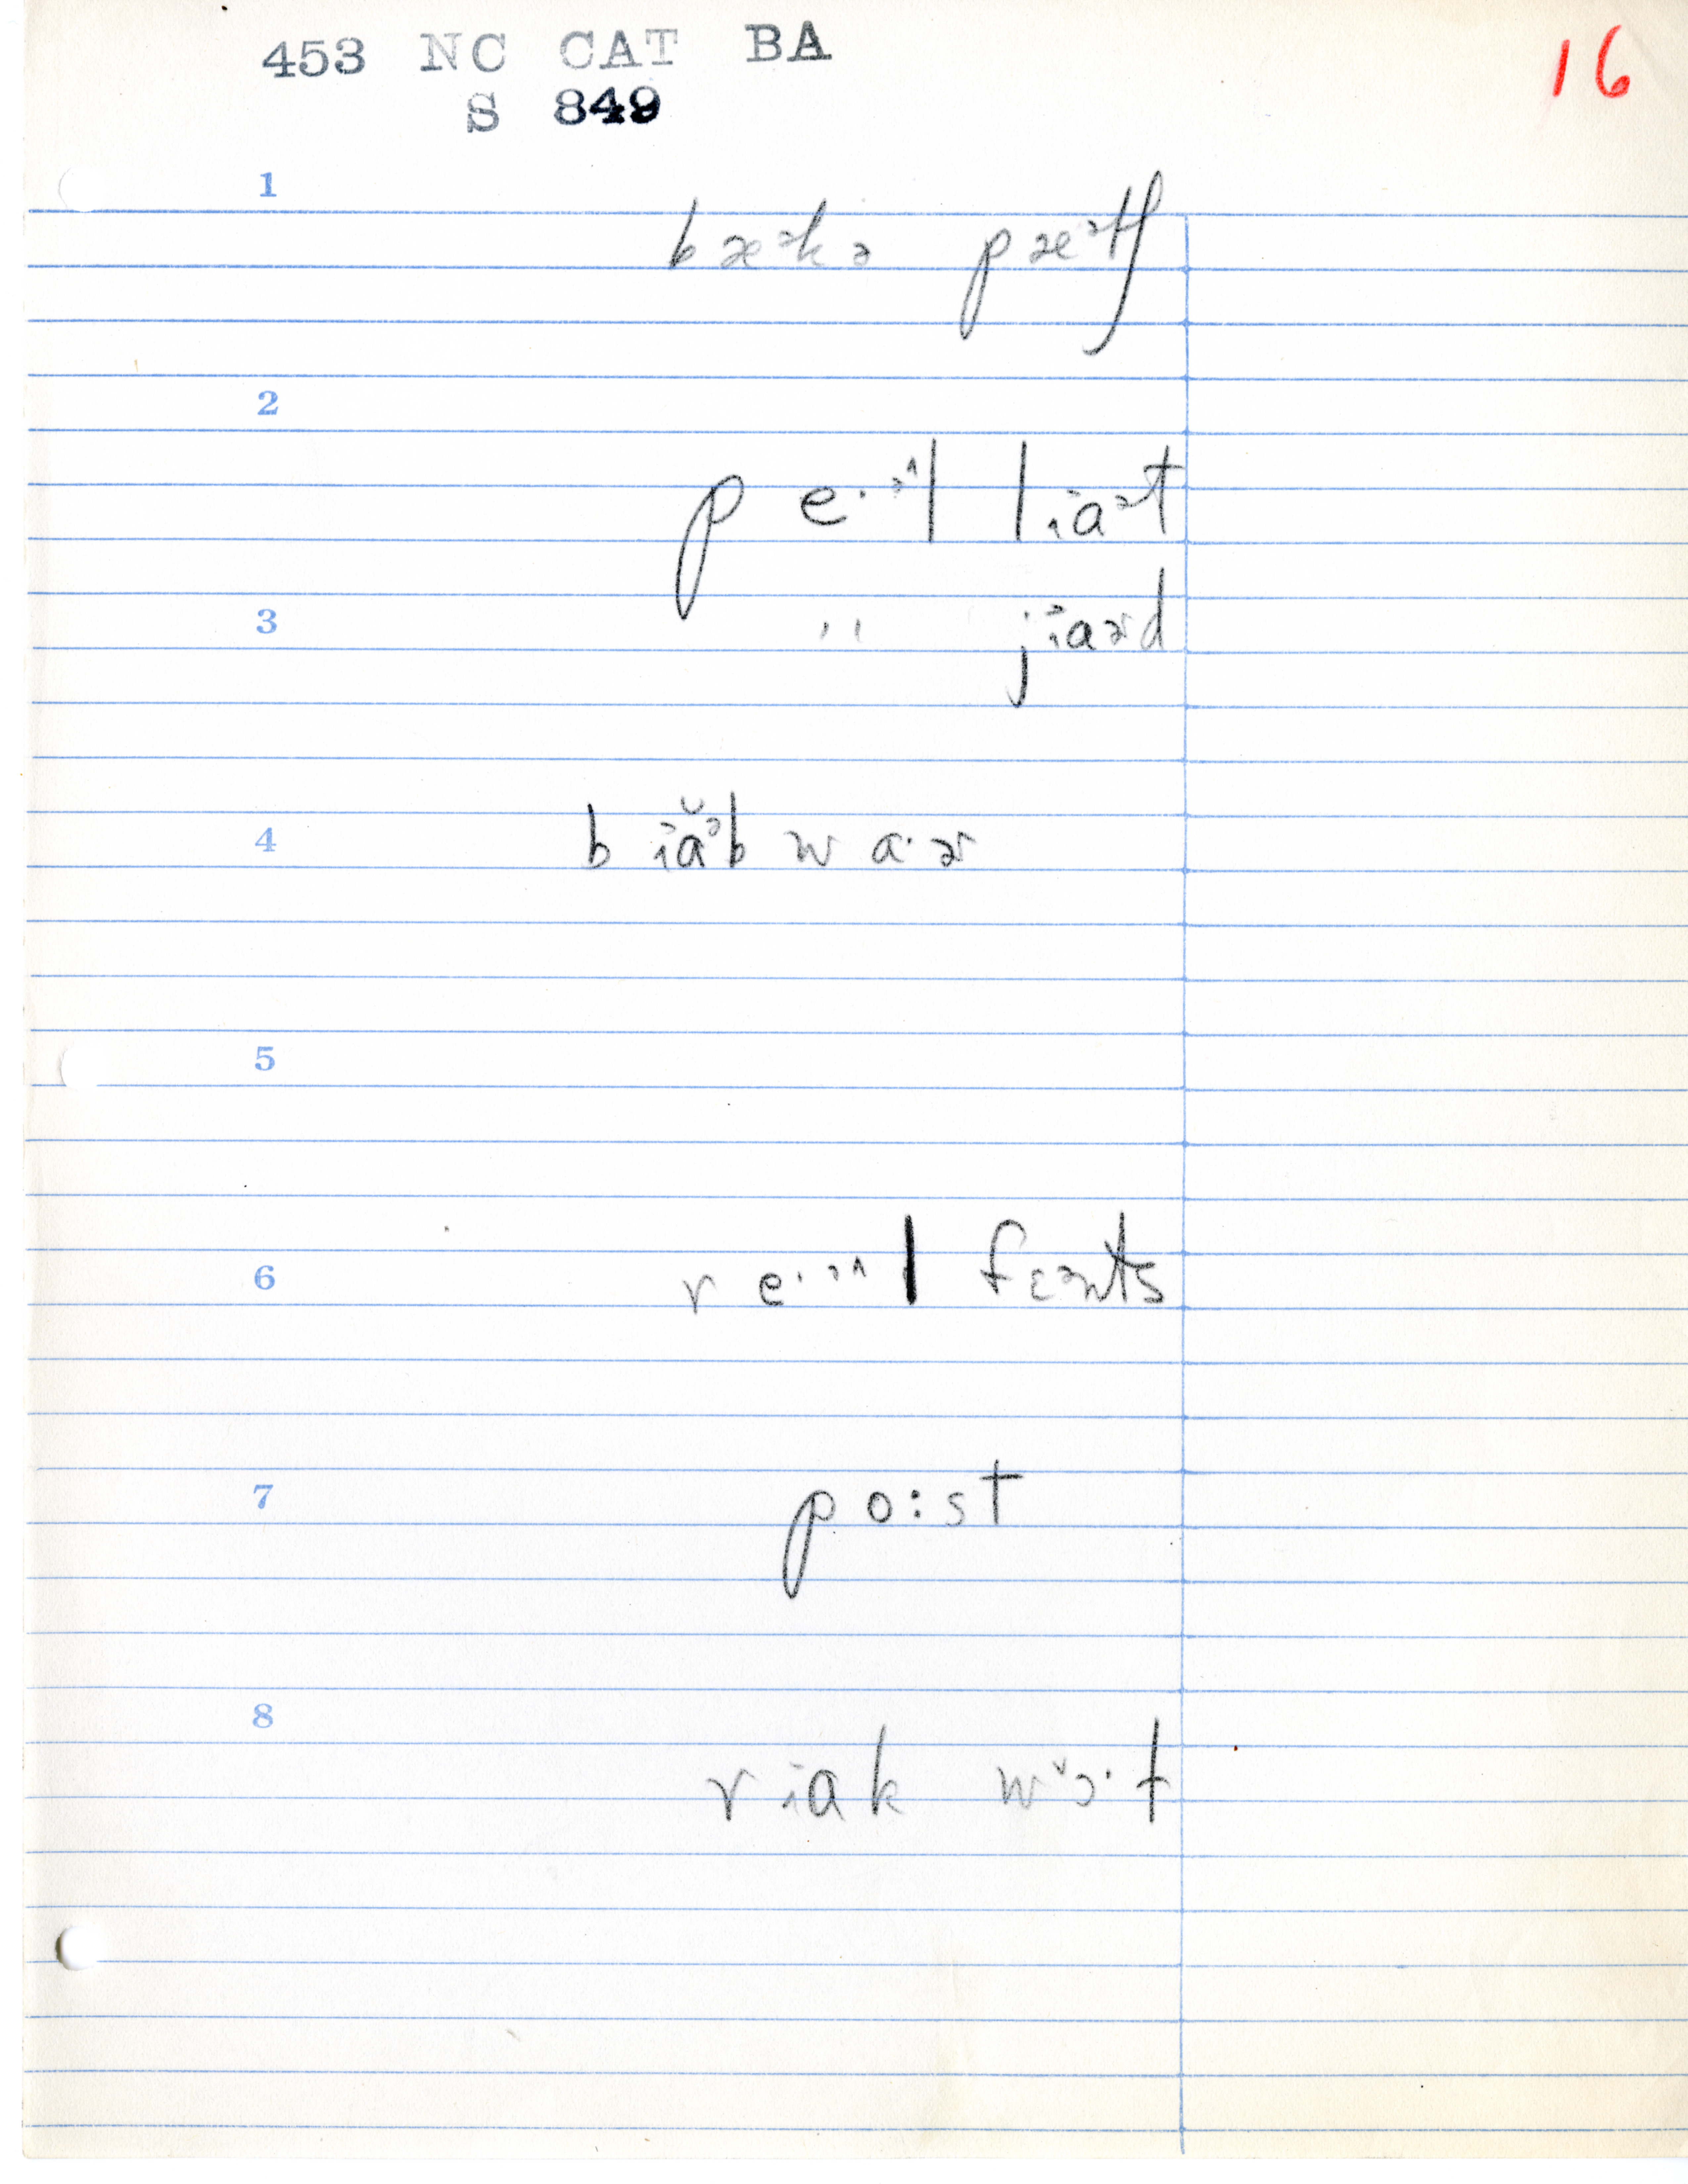 453 NC CAT BA
S 849
16
1
bæᵊkə pæᵊtʃ
2
p e·ᵊ^l l i̯aᵊt
3
" j i̯aɚd
4
b i̯ăᵊb w a·ɚ
5
6
r e·ᵊ^l fɛənts
7
p o:st
8
r i̯a k w ɔ·t